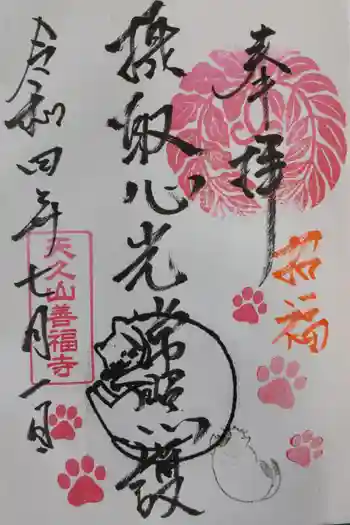 奉拝
招福
摂取心光常照護
令和四年七月一日
天久山善福寺